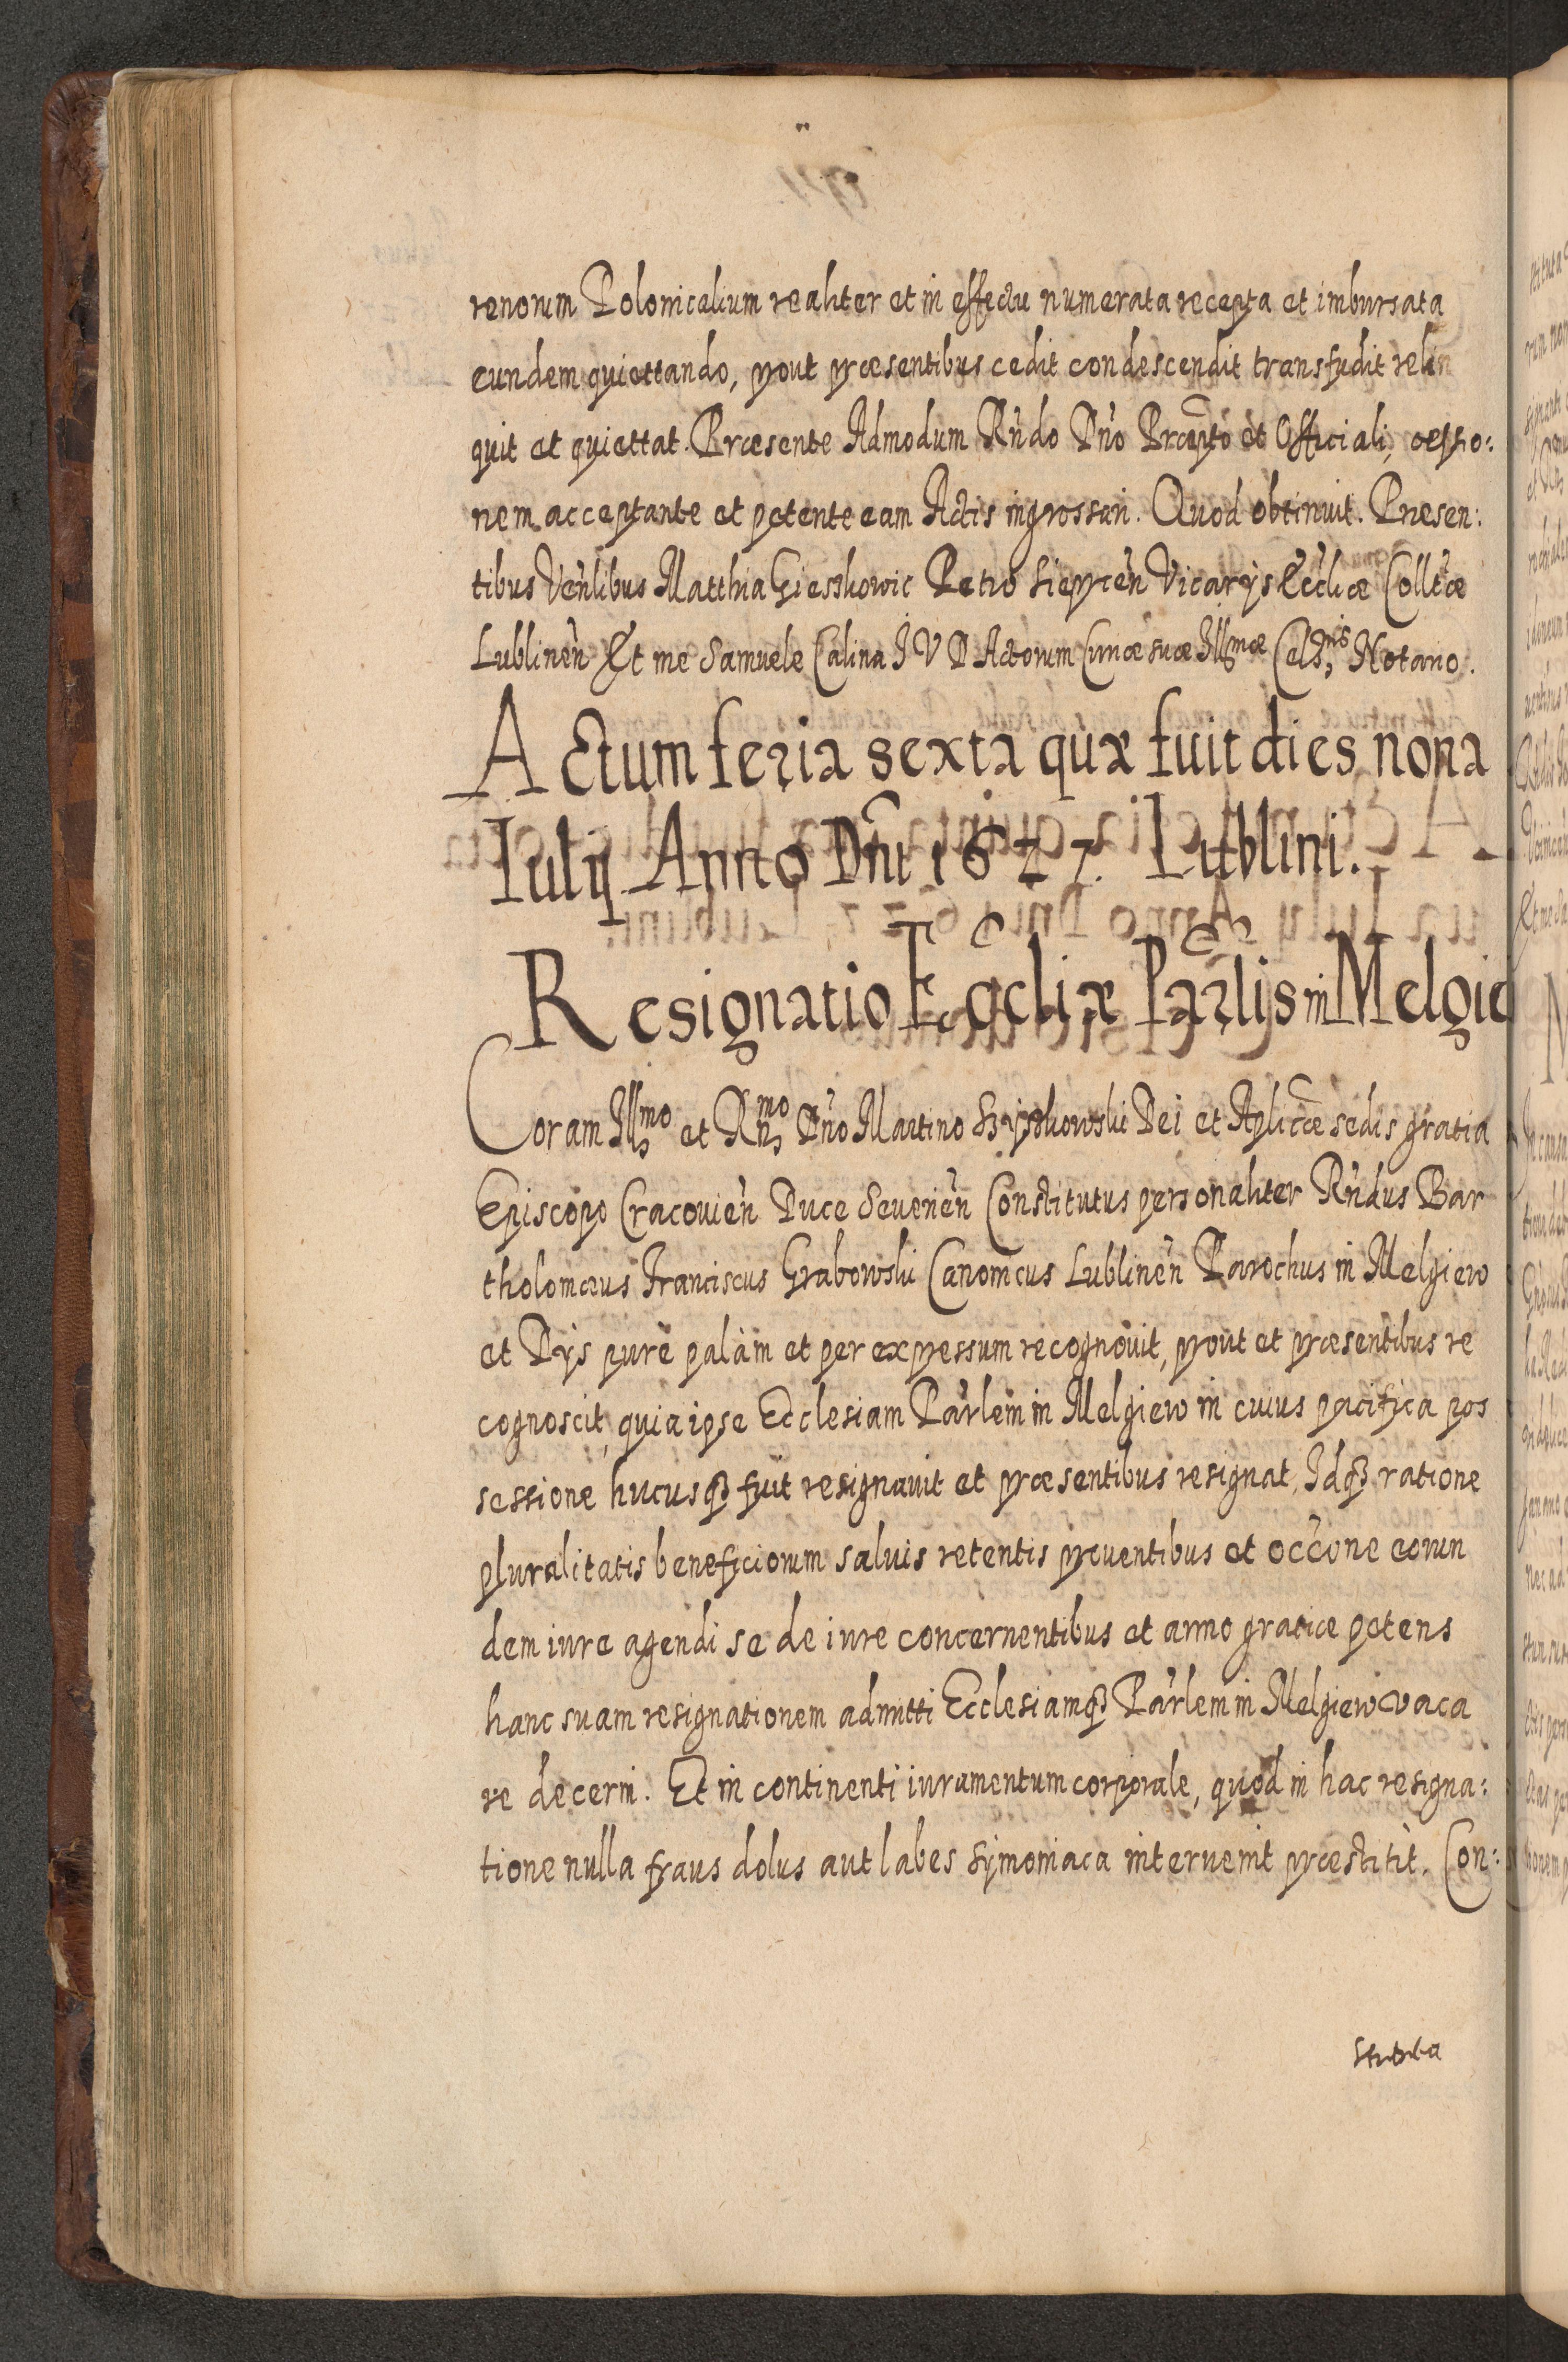 renorum Polonicalium realiter et in effectu numerata recepta et imbursata
eundem quiettando, prout præsentibus cedit condescendit transfudit relin
quit et quiettat. Præsente Admodum Rńdo Dńo Præpto et Officiali, cessio:
nem acceptante et petente eam Actis ingrossari. Quod obtinuit. Præsen:
tibus Venlibus Matthia Gieszkowic Petro Sieprceń Vicarijs Ecclicæ Colltæ
Lublineń Et me Samuele Calina I V D Actorum Curiæ suæ Illmæ Celsnis Notario.
Actum feria sexta quæ fuit dies nona
Iulij Anno Dñi 1627. Lublini.
Resignatio Ecclicæ Parlis in Melgie
Coram Illmo et Rmo Dńo Martino Szyszkowski Dei et Aplicæ sedis gratia
Episcopo Cracovień Duce Severień Constitutus personaliter Rńdus Bar
tholomæus Franciscus Grabowski Canonicus Lublineń Parochus in Melgiew
et Dys purè palàm et per expressum recognouit, prout et præsentibus re
cognoscit, quia ipse Ecclesiam Parlem in Melgiew in cuius pacifica pos
sessione hucusq3 fuit resignauit et præsentibus resignat, Idq3 ratione
pluralitatis beneficiorum saluis retentis prouentibus et occõne eorun
dem iure agendi se de iure concernentibus et anno gratiæ petens
hanc suam resignationem admitti Ecclesiamq3 Parlem in Melgiew vaca
re decerni. Et in continenti iuramentum corporale, quod in hac resigna:
tione nulla fraus dolus aut labes symoniaca interuenit præstitit. Con: